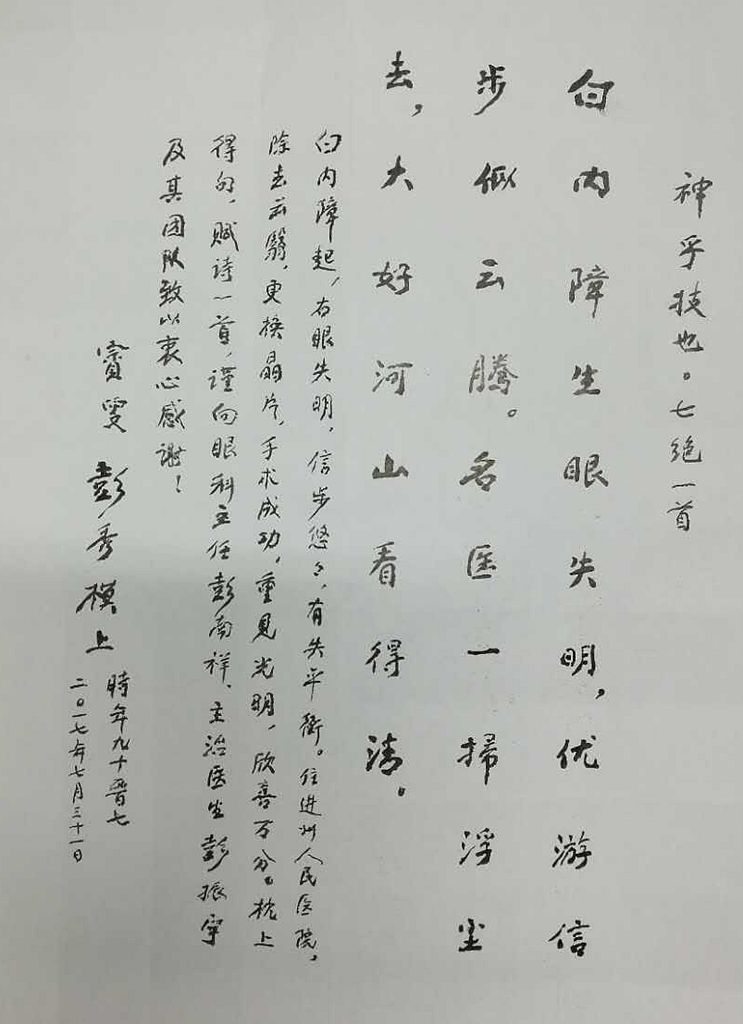 神乎技也。七绝一首
白内障生眼失明,优游信
步似云腾。名医一掃浮尘
去,大好河山看得清。
白内障起,右眼失明,信步悠々,有失平衡。住进州人民医院,
除去云翳,更换晶片,手术成功,重见光明,欣喜万分。枕上
得句,赋诗一首,谨向眼科主任彭南祥、主治医生彭振宇
及其团队致以衷心感谢!
賨叟 彭秀模上
時年九十晋七
二〇一七年七月三十一日